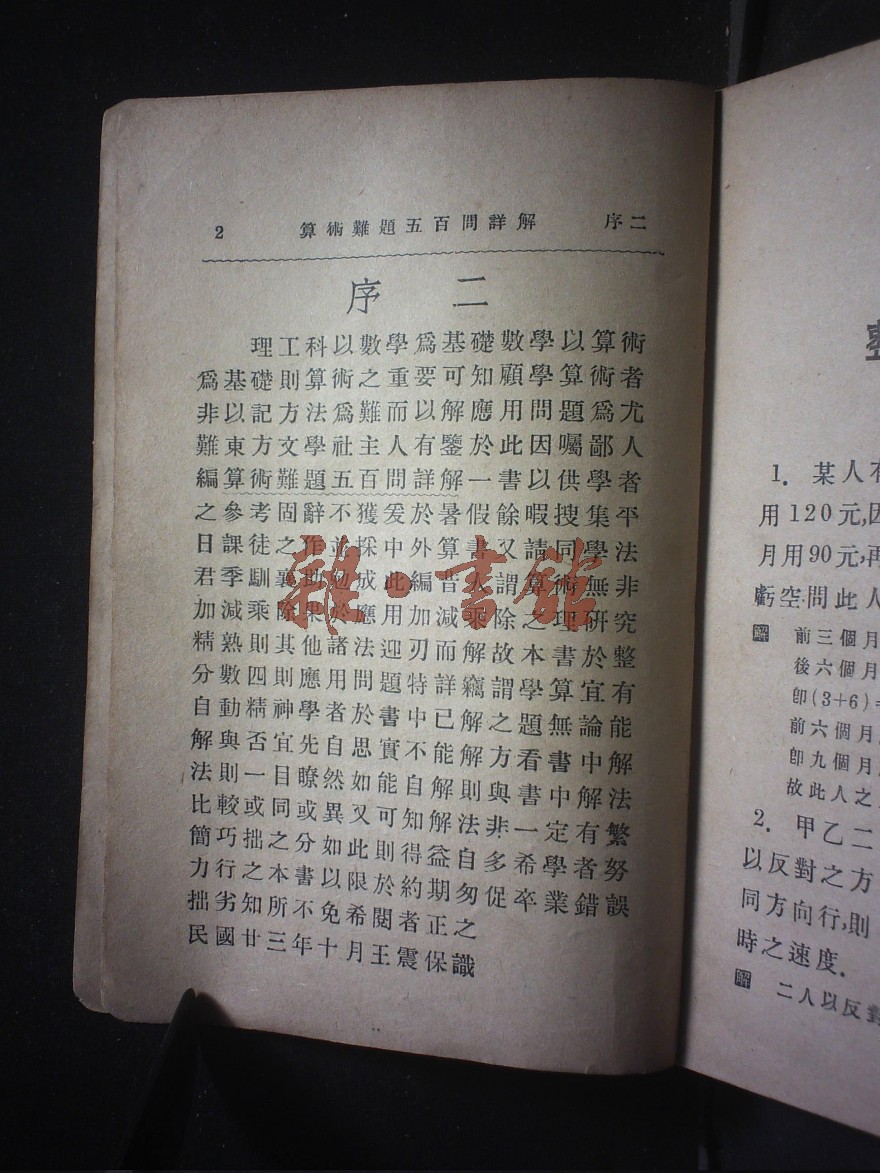 2 算術難題五百問詳解 序二
序 二
理工科以數學爲基礎數學以算術
爲基礎則算術之重要可知顧學算術者
非以記方法爲難而以解應用問題爲尤
難東方文學社主人有鑒於此因囑鄙人
編算術難題五百問詳解一書以供學者
之參考固辭不獲爰於暑假餘暇搜集平
日課徒之作並採中外算書又請同學法
君季馴襄助勉成此編昔人謂算術無非
加減乘除果於應用加減乘除之理研究
精熟則其他諸法迎刃而解故本書於整
分數四則應用問題特詳竊謂學算宜有
自動精神學者於書中已解之題無論能
解與否宜先自思實不能解方看書中解
法則一目瞭然如能自解則與書中解法
比較或同或異又可知解法非一定有繁
簡巧拙之分如此則得益自多希學者努
力行之本書以限於約期匆促卒業錯誤
拙劣知所不免希閱者正之
民國廿三年十月王震保識
雜·書館
整
1. 某人有
用120元,因
月用90元,再
虧空問此人
解 前三個月
後六個月
卽(3+6)=
前六個月
卽九個月
故此人之
2. 甲乙二
以反對之方
同方向行,則
時之速度.
解 二人以反對